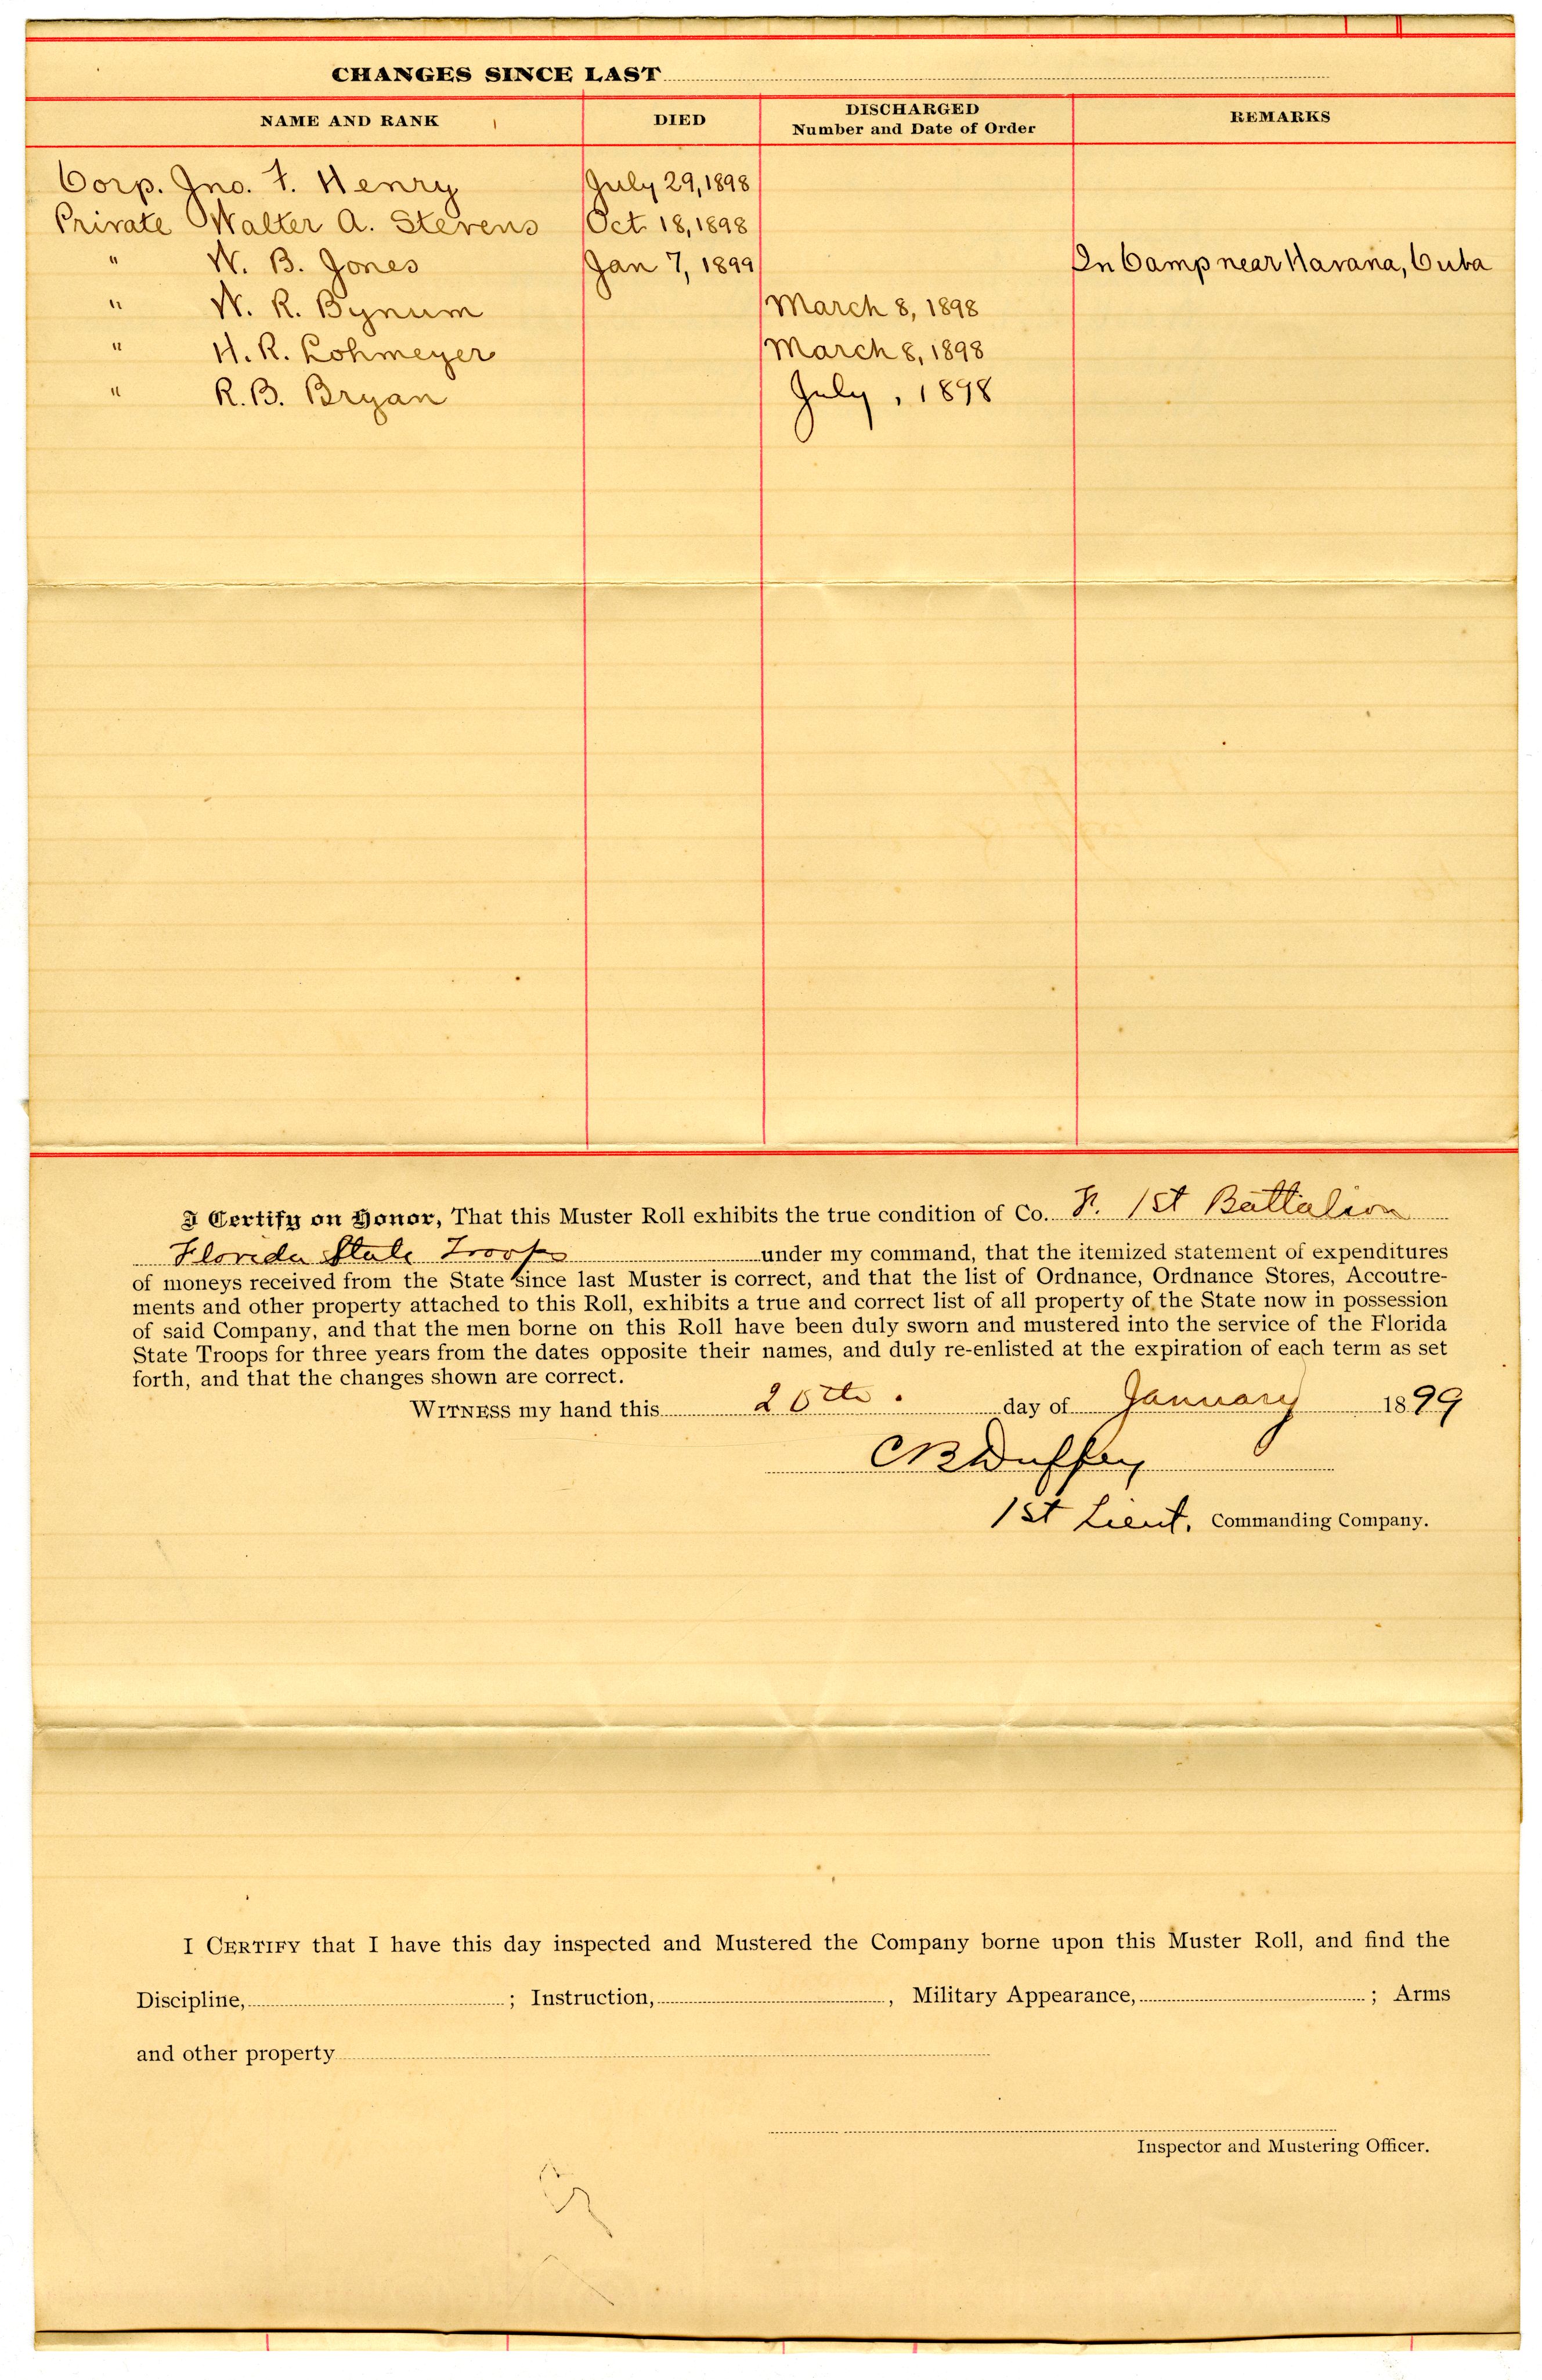 CHANGES SINCE LAST
NAME AND RANK DIED DISCHARGED Number and Date of Order REMARKS
Corp. Jno. F. Henry July 29, 1898
Private Walter A. Stevens Oct. 18, 1898
" W. B. Jones Jan 7, 1899 In Camp near Havana, Cuba
" W. R. Bynum March 8, 1898
" H. R. Lohmeyer March 8, 1898
" R. B. Bryan July , 1898
I Certify on Honor, That this Muster Roll exhibits the true condition of Co. F. 1st Battalion
Florida State Troops under my command, that the itemized statement of expenditures
of moneys received from the State since last Muster is correct, and that the list of Ordnance, Ordnance Stores, Accoutre-
ments and other property attached to this Roll, exhibits a true and correct list of all property of the State now in possession
of said Company, and that the men borne on this Roll have been duly sworn and mustered into the service of the Florida
State Troops for three years from the dates opposite their names, and duly re-enlisted at the expiration of each term as set
forth, and that the changes shown are correct.
WITNESS my hand this 20th. day of January 1899
C B Duffey
1st Lieut. Commanding Company.
I CERTIFY that I have this day inspected and Mustered the Company borne upon this Muster Roll, and find the
Discipline, ; Instruction, , Military Appearance, ; Arms
and other property
Inspector and Mustering Officer.